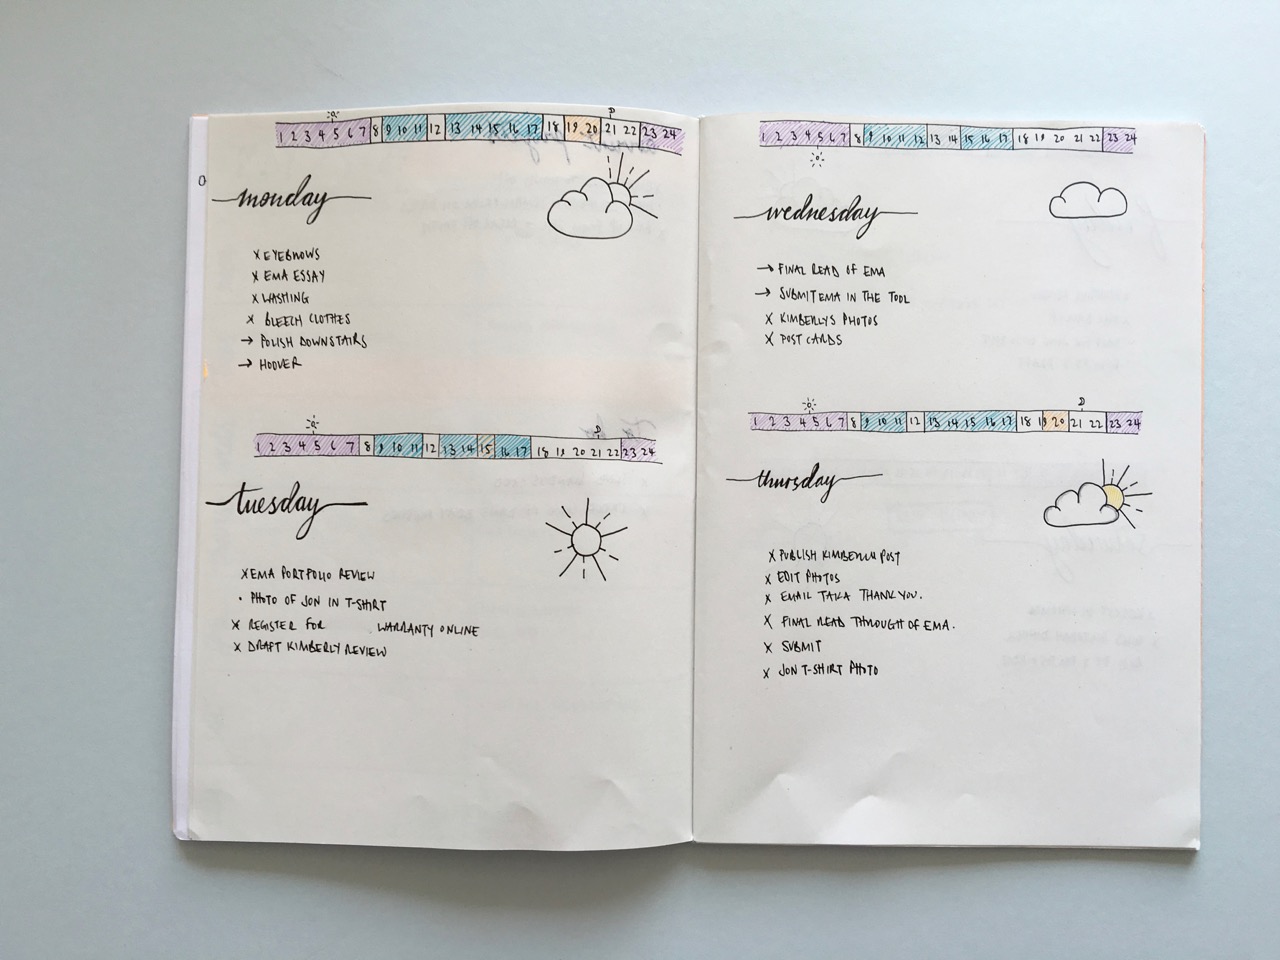 1 2 3 4 5 6 7 8 9 10 11 12 13 14 15 16 17 18 19 20 21 22 23 24
monday
X EYEBROWS
X EMA ESSAY
X WASHING
X BLEECH CLOTHES
→ POLISH DOWNSTAIRS
→ HOOVER
1 2 3 4 5 6 7 8 9 10 11 12 13 14 15 16 17 18 19 20 21 22 23 24
tuesday
X EMA PORTFOLIO REVIEW
• PHOTO OF JON IN T-SHIRT
X REGISTER FOR WARRANTY ONLINE
X DRAFT KIMBERLY REVIEW
1 2 3 4 5 6 7 8 9 10 11 12 13 14 15 16 17 18 19 20 21 22 23 24
wednesday
→ FINAL READ OF EMA
→ SUBMIT EMA IN THE TOOL
X KIMBERLYS PHOTOS
X POST CARDS
1 2 3 4 5 6 7 8 9 10 11 12 13 14 15 16 17 18 19 20 21 22 23 24
thursday
X PUBLISH KIMBERLY POST
X EDIT PHOTOS
X EMAIL TAKA THANK YOU.
X FINAL READ THROUGH OF EMA.
X SUBMIT
X JON T-SHIRT PHOTO